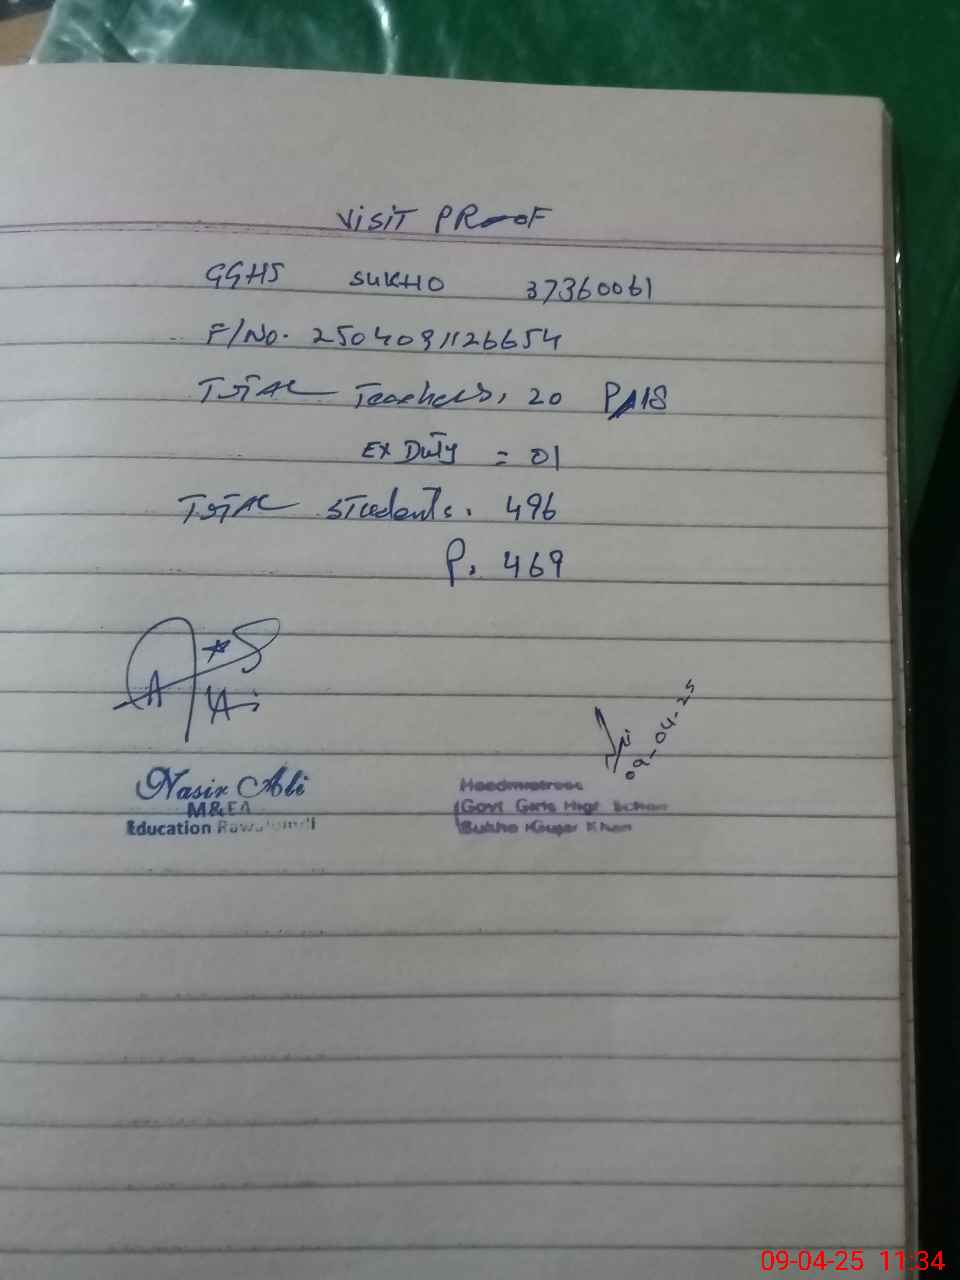 VISIT PROOF
GGHS SUKHO 37360061
F/No. 2504091126654
TOTAL Teachers. 20 P/18
EX Duty = 01
TOTAL Students. 496
P. 469
09-04-25
Nasir Ali
M&EA
Education Rawalpindi
Headmistress
Govt Girls High School
Sukho Gujar Khan
09-04-25 11:34